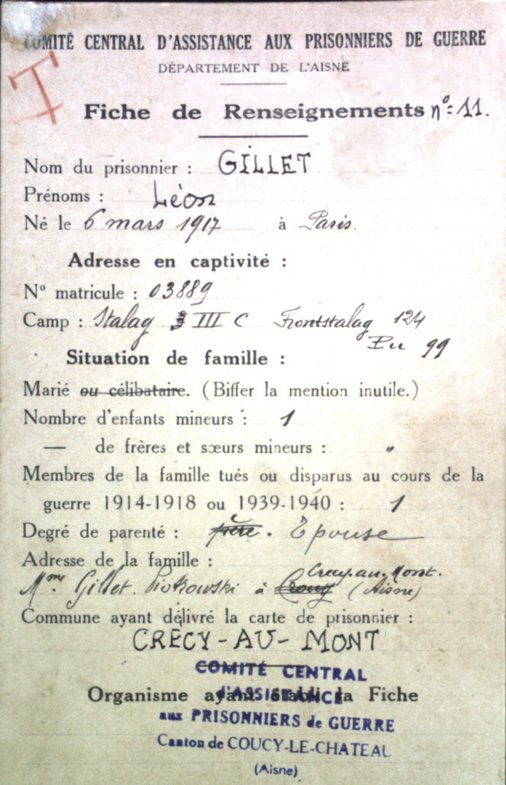 COMITÉ CENTRAL D'ASSISTANCE AUX PRISONNIERS DE GUERRE
DÉPARTEMENT DE L'AISNE
T
Fiche de Renseignements n°: 11.
Nom du prisonnier : GILLET
Prénoms : Léon
Né le 6 mars 1917 à Paris.
Adresse en captivité :
N° matricule : 03889
Camp : Stalag III C Frontstalag 124
99
Situation de famille :
Marié ou célibataire. (Biffer la mention inutile.)
Nombre d'enfants mineurs : 1
— de frères et sœurs mineurs : "
Membres de la famille tués ou disparus au cours de la
guerre 1914-1918 ou 1939-1940 : 1
Degré de parenté : frère. Epouse
Adresse de la famille :
Crecy-au-Mont.
Mme Gillet Piotrowski à Croug (Aisne)
Commune ayant délivré la carte de prisonnier :
CRÉCY-AU-MONT
COMITÉ CENTRAL
Organisme ayant établi la Fiche
d'ASSISTANCE
aux PRISONNIERS de GUERRE
Canton de COUCY-LE-CHATEAU
(Aisne)